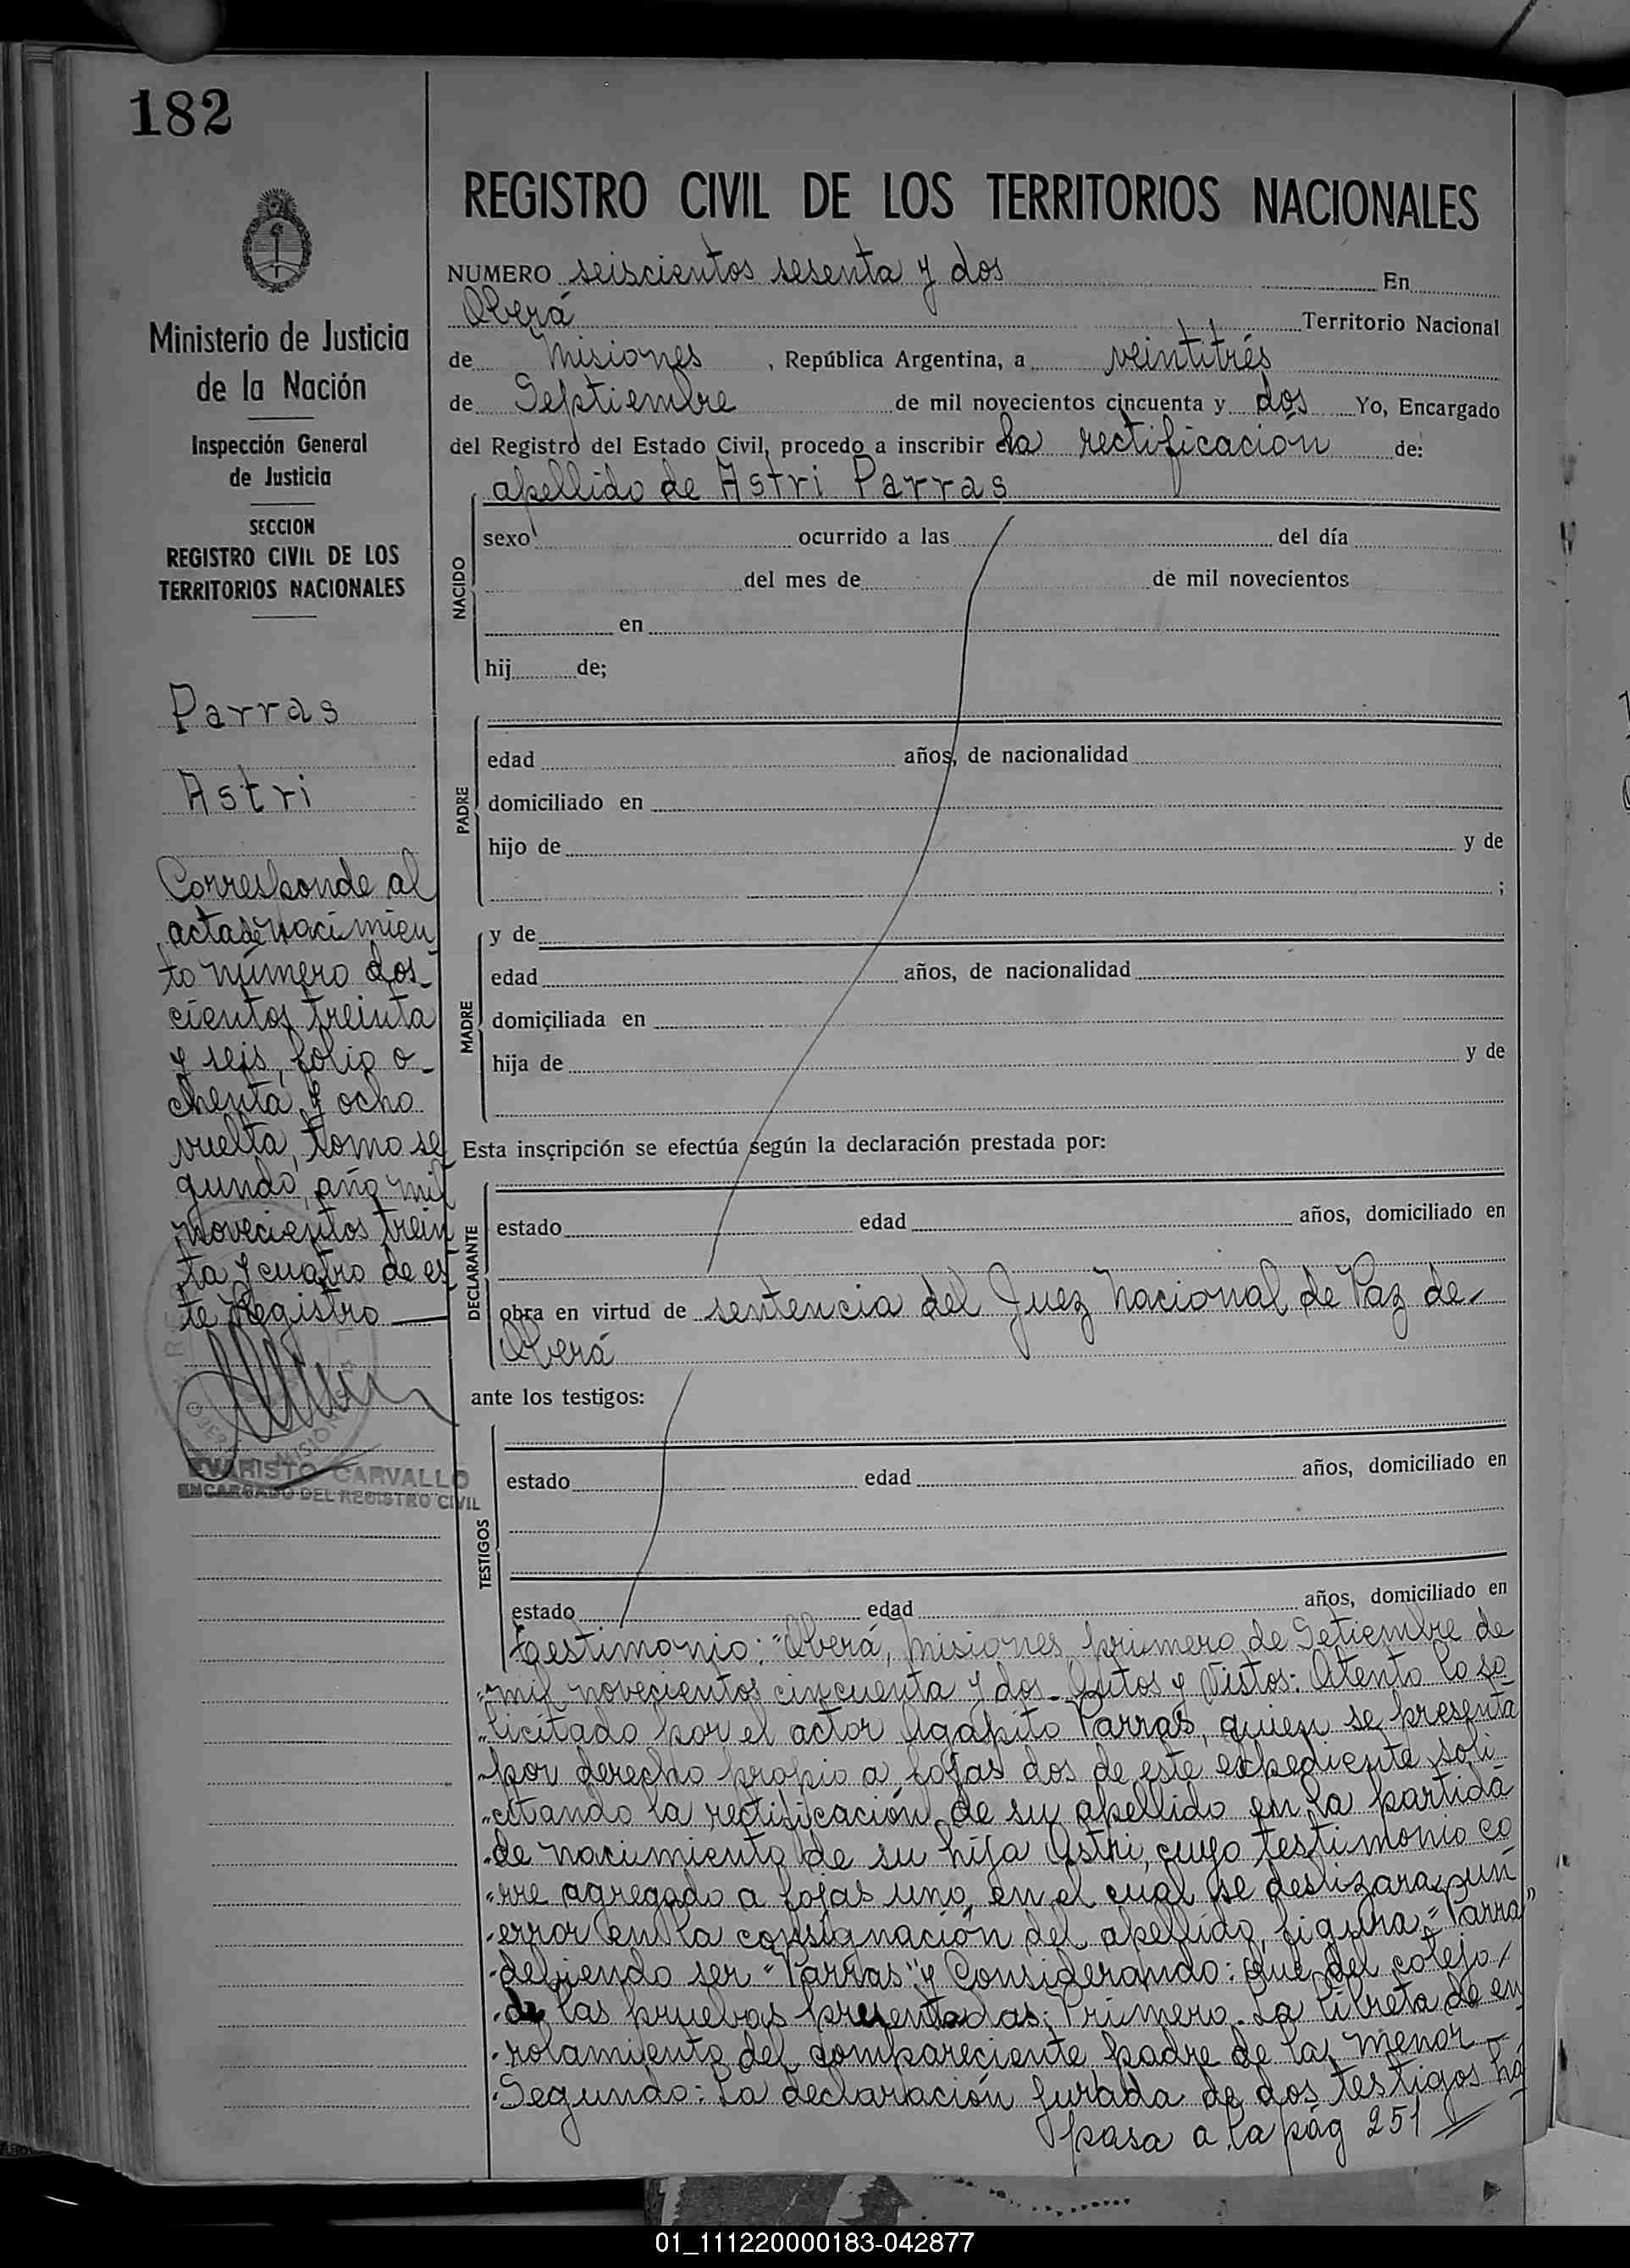 182
Ministerio de Justicia
de la Nación
Inspección General
de Justicia
SECCION
REGISTRO CIVIL DE LOS
TERRITORIOS NACIONALES
Parras
Astri
Corresponde al
acta de nacimien
to número dos-
cientos treinta
y seis, folio o-
chenta y ocho
vuelta, tomo se
gundo, año mil
novecientos trein
ta y cuatro de es
te Registro
EVARISTO CARVALLO
ENCARGADO DEL REGISTRO CIVIL
REGISTRO CIVIL DE LOS TERRITORIOS NACIONALES
NUMERO seiscientos sesenta y dos En
Oberá Territorio Nacional
de Misiones, República Argentina, a veintitrés
de Septiembre de mil novecientos cincuenta y dos Yo, Encargado
del Registro del Estado Civil, procedo a inscribir la rectificación de:
apellido de Astri Parras
NACIDO
sexo ocurrido a las del día
del mes de de mil novecientos
en
hij de;
PADRE
edad años, de nacionalidad
domiciliado en
hijo de y de
;
MADRE
y de
edad años, de nacionalidad
domiciliada en
hija de y de
Esta inscripción se efectúa según la declaración prestada por:
DECLARANTE
estado edad años, domiciliado en
obra en virtud de sentencia del Juez Nacional de Paz de
Oberá
ante los testigos:
TESTIGOS
estado edad años, domiciliado en
estado edad años, domiciliado en
Testimonio: "Oberá, Misiones, primero de Setiembre de
"mil novecientos cincuenta y dos. Autos y Vistos: Atento lo so
"licitado por el actor Agapito Parras, quien se presenta
"por derecho propio a fojas dos de este expediente soli
"citando la rectificación de su apellido en la partida
"de nacimiento de su hija Astri, cuyo testimonio co
"rre agregado a fojas uno, en el cual se deslizara un
"error en la consignación del apellido, figura "Parra"
"debiendo ser "Parras" y Considerando: Que del cotejo
"de las pruebas presentadas; Primero. La libreta de en
"rolamiento del compareciente padre de la menor -
"Segundo: La declaración jurada de dos testigos há
pasa a la pág 251
01_111220000183-042877